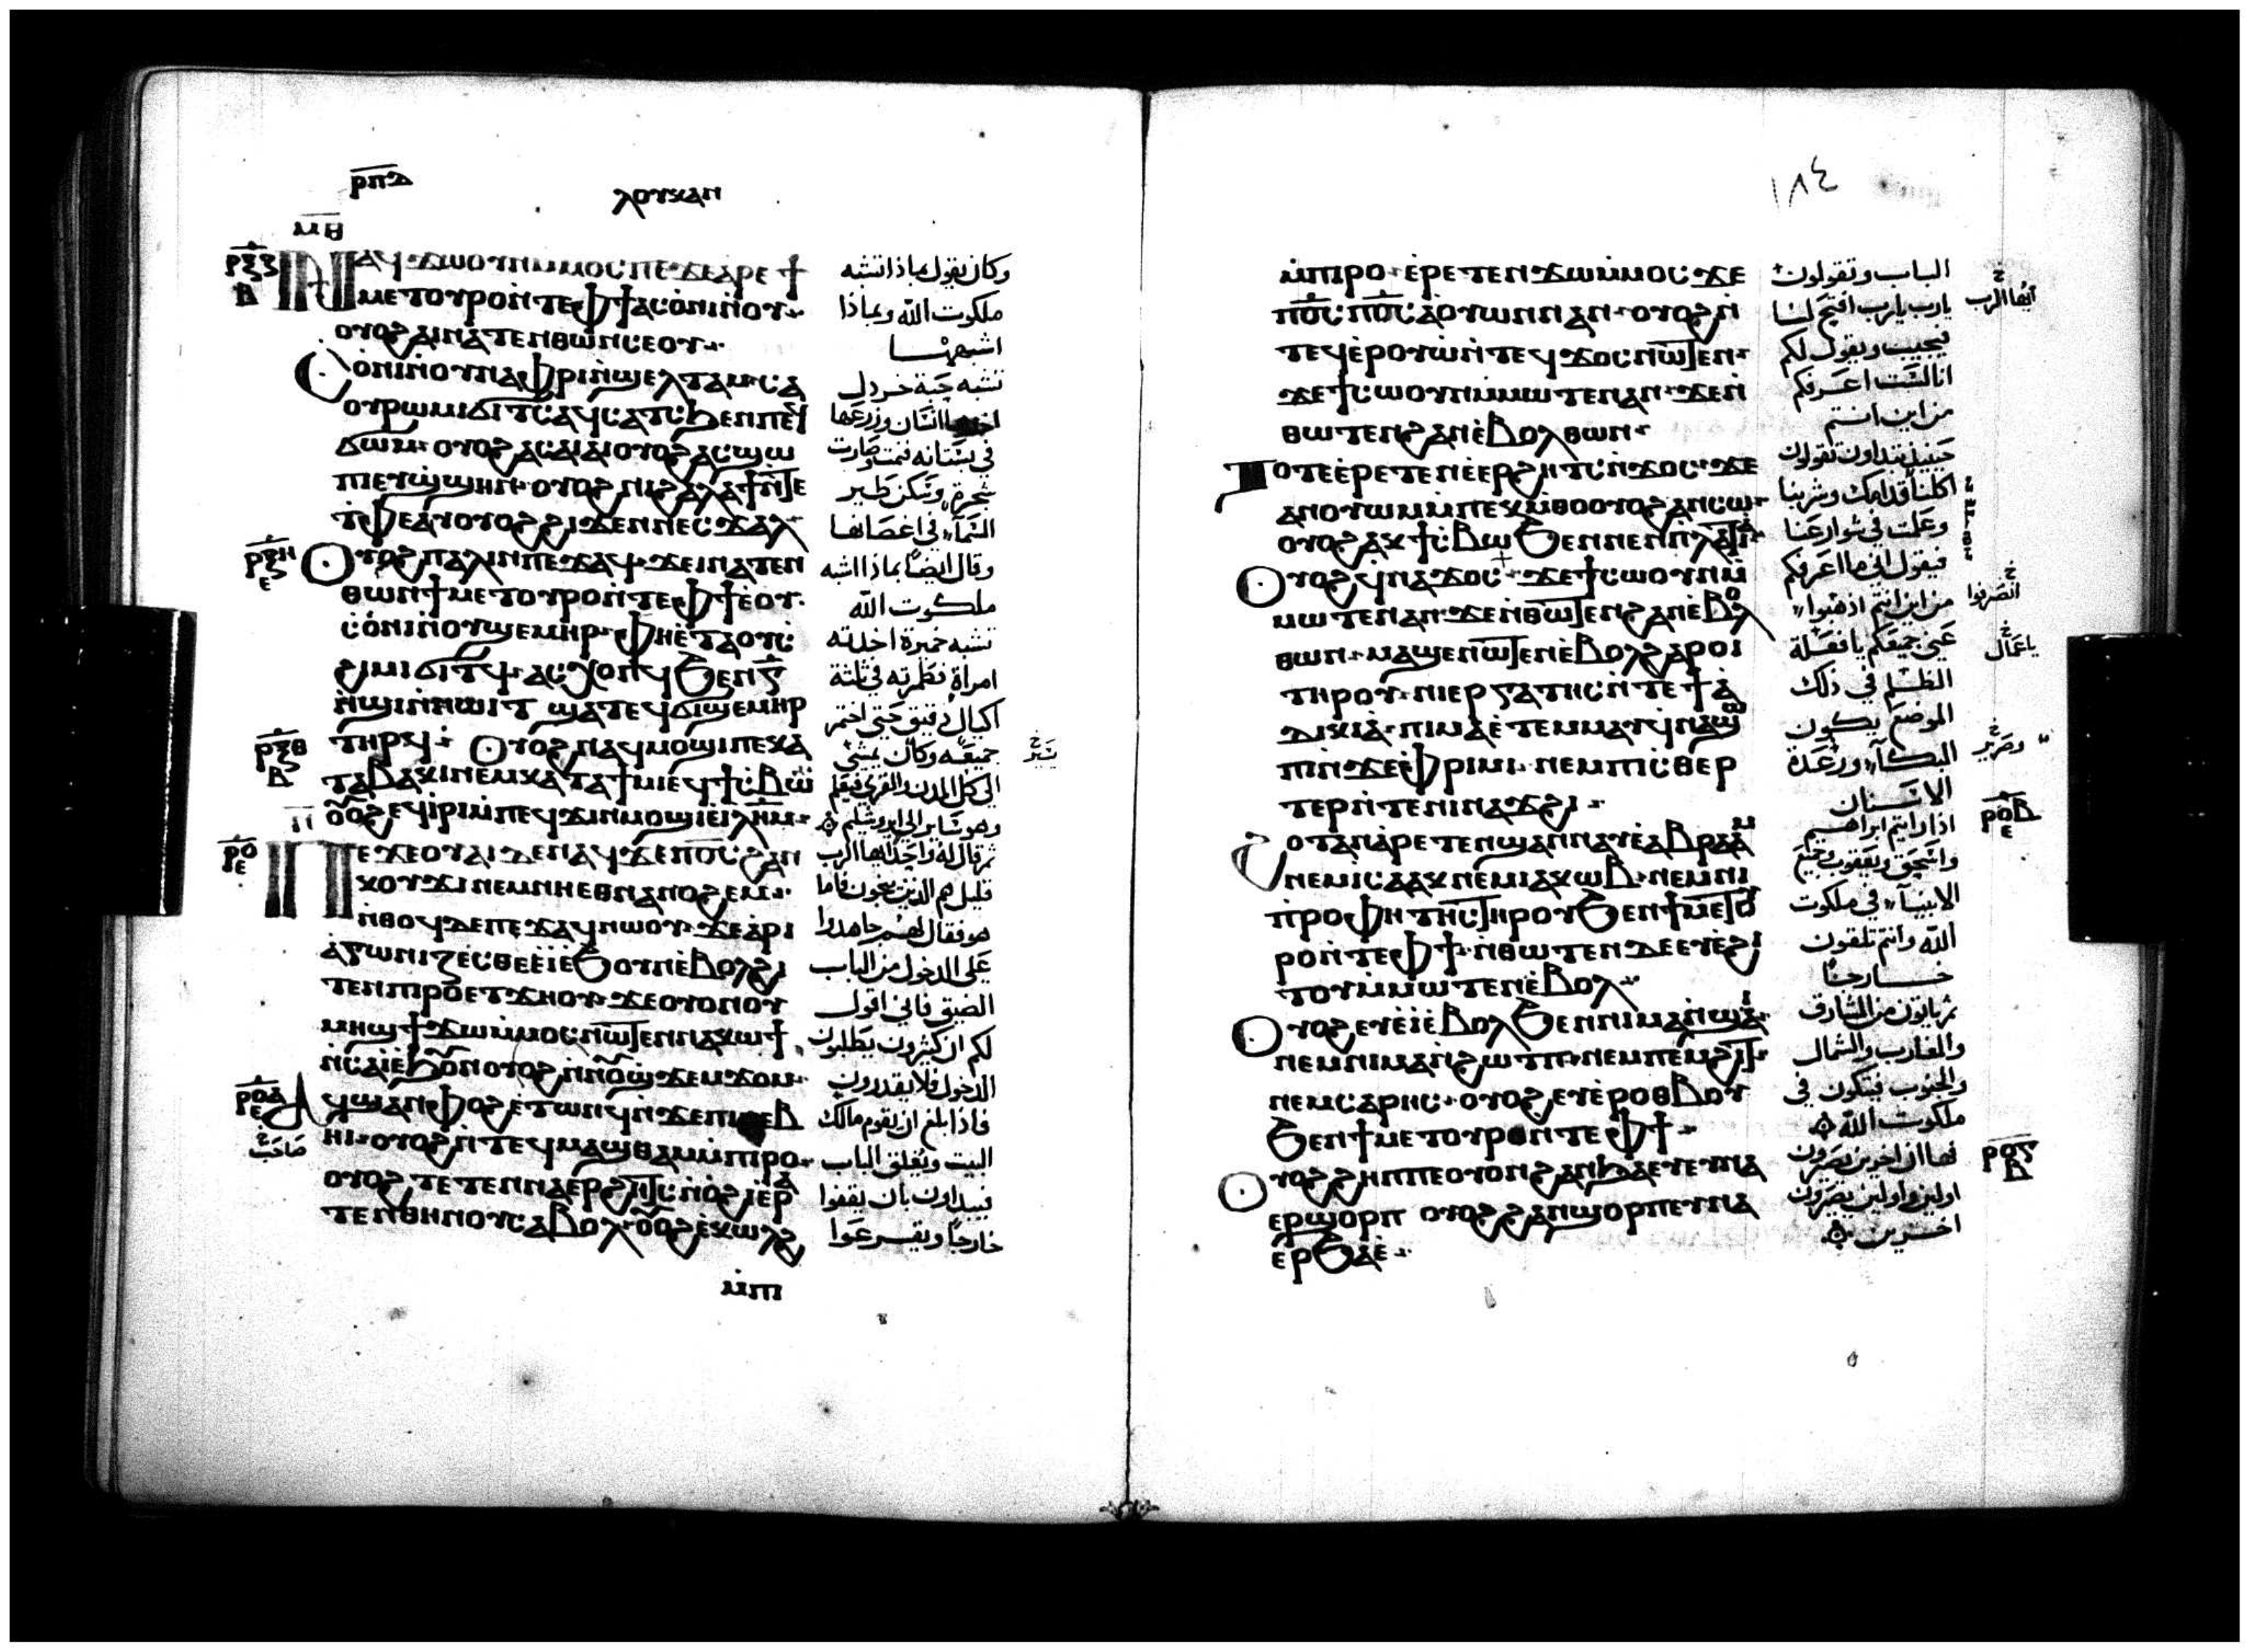 ⲣⲡⲇ
ⲗⲟⲩⲕⲁⲛ
ⲙⲑ
ⲣⲝⲍ
ⲃ
ⲛⲁϥϫⲱ ⲟⲩⲛ ⲙⲙⲟⲥ ⲡⲉ ϫⲉ ⲁⲣⲉ ϯ
ⲙⲉⲧⲟⲩⲣⲟ ⲛⲧⲉ ⲫϯ ⲁⲥⲟⲛⲓ ⲛⲟⲩ
ⲟⲩⲟϩ ⲁⲓⲛⲁⲧⲉⲛⲑⲱⲛⲥ ⲉⲟⲩ
ⲥⲟⲛⲓ ⲛⲟⲩⲛⲁⲫⲣⲓ ⲛϣⲉⲗⲧⲁⲙ ⲉⲁ
ⲟⲩⲣⲱⲙⲓ ϭⲓⲧⲥ ⲁϥⲥⲁⲧⲥ ϧⲉⲛ ⲡⲉϥ
ϭⲱⲙ ⲟⲩⲟϩ ⲁⲥⲁⲓⲁⲓ ⲟⲩⲟϩ ⲁⲥϣⲱ
ⲡⲓ ⲉⲩϣϣⲏⲛ ⲟⲩⲟϩ ⲛⲓϩⲁⲗⲁϯ ⲛⲧⲉ
ⲧⲫⲉ ⲁⲩⲟⲩⲟϩ ϩⲓϫⲉⲛ ⲛⲉⲥϫⲁⲗ
ⲣⲝⲏ
ⲉ
ⲟⲩⲟϩ ⲡⲁⲗⲓⲛ ⲡⲉϫⲁϥ ϫⲉ ⲁⲓⲛⲁⲧⲉⲛ
ⲑⲱⲛ ϯⲙⲉⲧⲟⲩⲣⲟ ⲛⲧⲉ ⲫϯ ⲉⲟⲩ
ⲥⲟⲛⲓ ⲛⲟⲩϣⲉⲙⲏⲣ ⲫⲏ ⲉⲧⲁ ⲟⲩⲥ
ϩⲓⲙⲓ ϭⲓⲧϥ ⲁⲥⲭⲟⲡϥ ϧⲉⲛ ⲅ
ⲛϣⲓ ⲛⲛⲱⲓⲧ ϣⲁⲧⲉϥϭⲓϣⲉⲙⲏⲣ
ⲣⲝⲑ
ⲃ
ⲧⲏⲣϥ ⲟⲩⲟϩ ⲛⲁϥⲙⲟϣⲓ ⲡⲉ ⲕⲁ
ⲧⲁ ⲃⲁⲕⲓ ⲛⲉⲙ ⲕⲁⲧⲁ ϯⲙⲓ ⲉϥϯⲥⲃⲱ
ⲟⲩⲟϩ ⲉϥⲓⲣⲓ ⲙⲡⲉϥϫⲓⲛⲙⲟϣⲓ ⲉⲓⲗⲏⲙ
ⲛ
ⲣⲟ
ⲉ
ⲡⲉϫⲉ ⲟⲩⲁⲓ ⲇⲉ ⲛⲁϥ ϫⲉ ⲡⲟⲥ ϩⲁⲛ
ⲕⲟⲩϫⲓ ⲛⲉ ⲛⲏ ⲉⲑⲛⲁⲛⲟϩⲉⲙ
ⲛⲑⲟϥ ⲇⲉ ⲡⲉϫⲁϥ ⲛⲱⲟⲩ ϫⲉ ⲁⲣⲓ
ⲁⲅⲱⲛⲓⲍⲉⲥⲑⲉ ⲉⲓ ⲉϧⲟⲩⲛ ⲉⲃⲟⲗ ϩⲓ
ⲧⲉⲛ ⲡⲓⲣⲟ ⲉⲧϫⲏⲟⲩ ϫⲉ ⲟⲩⲟⲛ ⲟⲩ
ⲙⲏϣ ϯϫⲱ ⲙⲙⲟⲥ ⲛⲱⲧⲉⲛ ⲛⲁⲕⲱϯ
ⲛⲥⲁ ⲓ ⲉϧⲟⲩⲛ ⲟⲩⲟϩ ⲛⲛⲟⲩϣϫⲉⲙϫⲟⲙ
ⲣⲟⲁ
ⲉ
ⲁϥϣⲁⲛⲫⲟϩ ⲉⲧⲱⲛϥ ⲛϫⲉ ⲡⲓⲛⲉⲃ
ⲏⲓ ⲟⲩⲟϩ ⲛⲧⲉϥⲙⲁϣⲑⲁⲙ ⲙⲡⲓⲣⲟ
ⲟⲩⲟϩ ⲧⲉⲧⲉⲛⲛⲁⲉⲣϩⲏⲧⲥ ⲛⲟϩⲓ ⲉⲣⲁ
ⲧⲉⲛ ⲑⲏⲛⲟⲩ ⲥⲁⲃⲟⲗ ⲟⲩⲟϩ ⲉⲕⲱⲗϩ
ⲙⲡⲓ
وكان يقول بماذا تشبه
ملكوت الله وبماذا
اشبهها
تشبه حبة خردل
انسان وزرعها
في بستانه فنمت وصارت
شجرة وسكن طير
السماء في اغصانها
وقال ايضا بماذا اشبه
ملكوت الله
تشبه خميرة اخذته
امراة فطمرته في ثلثة
اكيال دقيق حتى اختمر
جميعه وكان يمشي
الى كل المدن والقرى فيعلم
وهو سائر الى ايروشليم
ثم قال له واحد ايها الرب
قليل هم الذين ينجون فاما
هو فقال لهم جاهدوا
على الدخول من الباب
الضيق فاني اقول
لكم ان كثيرون يطلبون
الدخول فلا يقدرون
فاذا بلغ ان يقوم مالك
البيت ويغلق الباب
فيبداون بان يقفوا
خارجا ويقرعوا
يسير
صاحب
١٨٤
ⲙⲡⲓⲣⲟ ⲉⲣⲉⲧⲉⲛϫⲱ ⲙⲙⲟⲥ ϫⲉ
ⲡⲟⲥ ⲡⲟⲥ ⲁⲟⲩⲱⲛ ⲛⲁⲛ ⲟⲩⲟϩ ⲛ
ⲧⲉϥⲉⲣⲟⲩⲱ ⲛⲧⲉϥϫⲟⲥ ⲛⲱⲧⲉⲛ
ϫⲉ ϯⲥⲱⲟⲩⲛ ⲙⲙⲱⲧⲉⲛ ⲁⲛ ϫⲉ ⲛ
ⲑⲱⲧⲉⲛ ϩⲁⲛ ⲉⲃⲟⲗ ⲑⲱⲛ
ⲧⲟⲧⲉ ⲉⲣⲉⲧⲉⲛⲉⲉⲣϩⲏⲧⲥ ⲛϫⲟⲥ ϫⲉ
ⲁⲛⲟⲩⲱⲙ ⲙⲡⲉⲕⲙⲑⲟ ⲟⲩⲟϩ ⲁⲛⲥⲱ
ⲟⲩⲟϩ ⲁⲕϯⲥⲃⲱ ϧⲉⲛ ⲛⲉⲛⲡⲗⲁⲧⲓⲁ
ⲟⲩⲟϩ ϥⲛⲁϫⲟⲥ ϫⲉ ϯⲥⲱⲟⲩⲛ ⲙ
ⲙⲱⲧⲉⲛ ⲁⲛ ϫⲉ ⲛⲑⲱⲧⲉⲛ ϩⲁⲛ ⲉⲃⲟⲗ
ⲑⲱⲛ ⲙⲁϣⲉⲛⲱⲧⲉⲛ ⲉⲃⲟⲗ ϩⲁⲣⲟⲓ
ⲧⲏⲣⲟⲩ ⲛⲓⲉⲣⲅⲁⲧⲏⲥ ⲛⲧⲉ ϯⲁ
ⲇⲓⲕⲓⲁ ⲡⲓⲙⲁ ⲉⲧⲉⲙⲙⲁⲩ ϥⲛⲁϣⲱ
ⲡⲓ ⲛϫⲉ ⲫⲣⲓⲙⲓ ⲛⲉⲙ ⲡⲓⲥⲑⲉⲣ
ⲧⲉⲣ ⲛⲧⲉ ⲛⲓⲛⲁϫϩⲓ
ϩⲟⲧⲁⲛ ⲁⲣⲉⲧⲉⲛϣⲁⲛⲛⲁⲩ ⲉⲁⲃⲣⲁⲁⲙ
ⲛⲉⲙ ⲓⲥⲁⲁⲕ ⲛⲉⲙ ⲓⲁⲕⲱⲃ ⲛⲉⲙ ⲛⲓ
ⲡⲣⲟⲫⲏⲧⲏⲥ ⲧⲏⲣⲟⲩ ϧⲉⲛ ϯⲙⲉⲧⲟⲩ
ⲣⲟ ⲛⲧⲉ ⲫϯ ⲛⲑⲱⲧⲉⲛ ⲇⲉ ⲉⲩⲉϩⲓ
ⲧⲟⲩ ⲙⲙⲱⲧⲉⲛ ⲉⲃⲟⲗ
ⲟⲩⲟϩ ⲉⲩⲉⲓ ⲉⲃⲟⲗ ϧⲉⲛ ⲛⲓⲙⲁⲛϣⲁⲓ
ⲛⲉⲙ ⲛⲓⲙⲁⲛϩⲱⲧⲡ ⲛⲉⲙ ⲡⲉⲙϩⲓⲧ
ⲛⲉⲙ ⲥⲁⲣⲏⲥ ⲟⲩⲟϩ ⲉⲩⲉⲣⲟⲑⲃⲟⲩ
ϧⲉⲛ ϯⲙⲉⲧⲟⲩⲣⲟ ⲛⲧⲉ ⲫϯ
ⲟⲩⲟϩ ϩⲏⲡⲡⲉ ⲟⲩⲟⲛ ϩⲁⲛϧⲁⲉⲩ ⲉⲩⲛⲁ
ⲉⲣϣⲟⲣⲡ ⲟⲩⲟϩ ϩⲁⲛϣⲟⲣⲡ ⲉⲩⲛⲁ
ⲉⲣϧⲁⲉ
الباب وتقولون
يارب يارب افتح لنا
فيجيب ويقول لكم
انا لست اعرفكم
من اين انتم
حينئذ تبداون تقولون
اكلنا قدامك وشربنا
وعلمت في شوارعنا
فيقول اني ما اعرفكم
من اين انتم اذهبوا
عني جميعكم يا فعلة
الظلم في ذلك
الموضع يكون
البكاء ورعدة
الاسنان
اذا رايتم ابراهيم
واسحق ويعقوب وجميع
الانبياء في ملكوت
الله وانتم تلقون
خارجا
ثم ياتون من المشارق
والمغارب والشمال
والجنوب فيتكون في
ملكوت الله
فها ان اخرين يصيرون
اولين واولين يصيرون
اخرين
ايها الرب
انصرفوا
يا عمال
وصرير
ⲣⲟⲃ
ⲉ
ⲣⲟⲅ
ⲃ